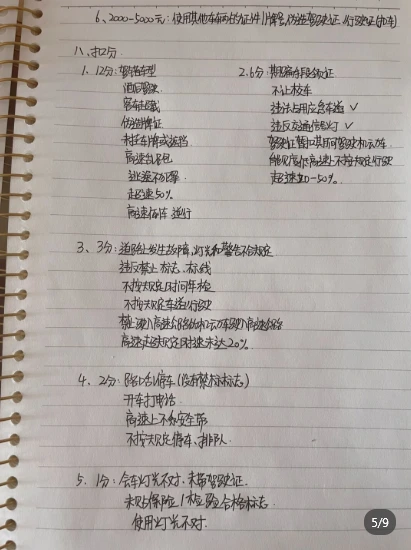 6、2000-5000元:使用其他车辆的证件/牌号,伪造驾驶证、行驶证(扣车)
八、扣分
1、12分:驾驶车型
酒后驾驶
客车超载
伪造牌证
未挂车牌或遮挡
高速
逃逸不犯罪
超速50%
高速 逆行
2、6分:
不让校车
违法占用应急车道 ✓
违反交通信号灯 ✓
驾驶证暂扣期间驾驶机动车
能见度低高速上不按规定行驶
超速20-50%
3、3分:道路上发生故障,灯光和警告不按规定
违反禁止标志、标线
不按规定时间年检
不按规定车道行驶
禁止驶入高速公路的机动车驶入高速公路
高速超规定时速未达20%
4、2分:路口 停车(没有禁标标志)
开车打电话
高速上不系安全带
不按规定停车、排队
5、1分:会车灯光不对、未带驾驶证
未贴保险/检验合格标志
使用灯光不对.
5/9